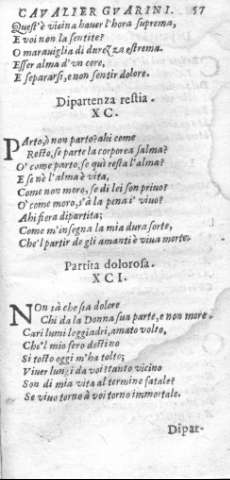 CAVALIER GVARINI. 57
Quest'è vicina hauer l'hora suprema,
E voi non la sentite?
O marauiglia di durezza estrema.
Esser alma d'vn core,
E separarsi, e non sentir dolore.
Dipartenza restia.
XC.
PArto, ò non parto? ahi come
Resto, se parte la corporea salma?
O' come parto, se qui resta l'alma?
E se n'è l'alma è vita,
Come non moro, se di lei son priuo?
O' come moro, s'à la pena i' viuo?
Ahi fiera dipartita;
Come m'insegna la mia dura sorte,
Che'l partir de gli amanti è viua morte.
Partita dolorosa.
XCI.
NOn sà che sia dolore
Chi da la Donna sua parte, e non more.
Cari lumi leggiadri, amato volto,
Che'l mio fero destino
Si tosto oggi m'ha tolto;
Viuer lungi da voi? tanto vicino
Son di mia vita al termine fatale?
Se viuo torno à voi torno immortale.
Dipar-